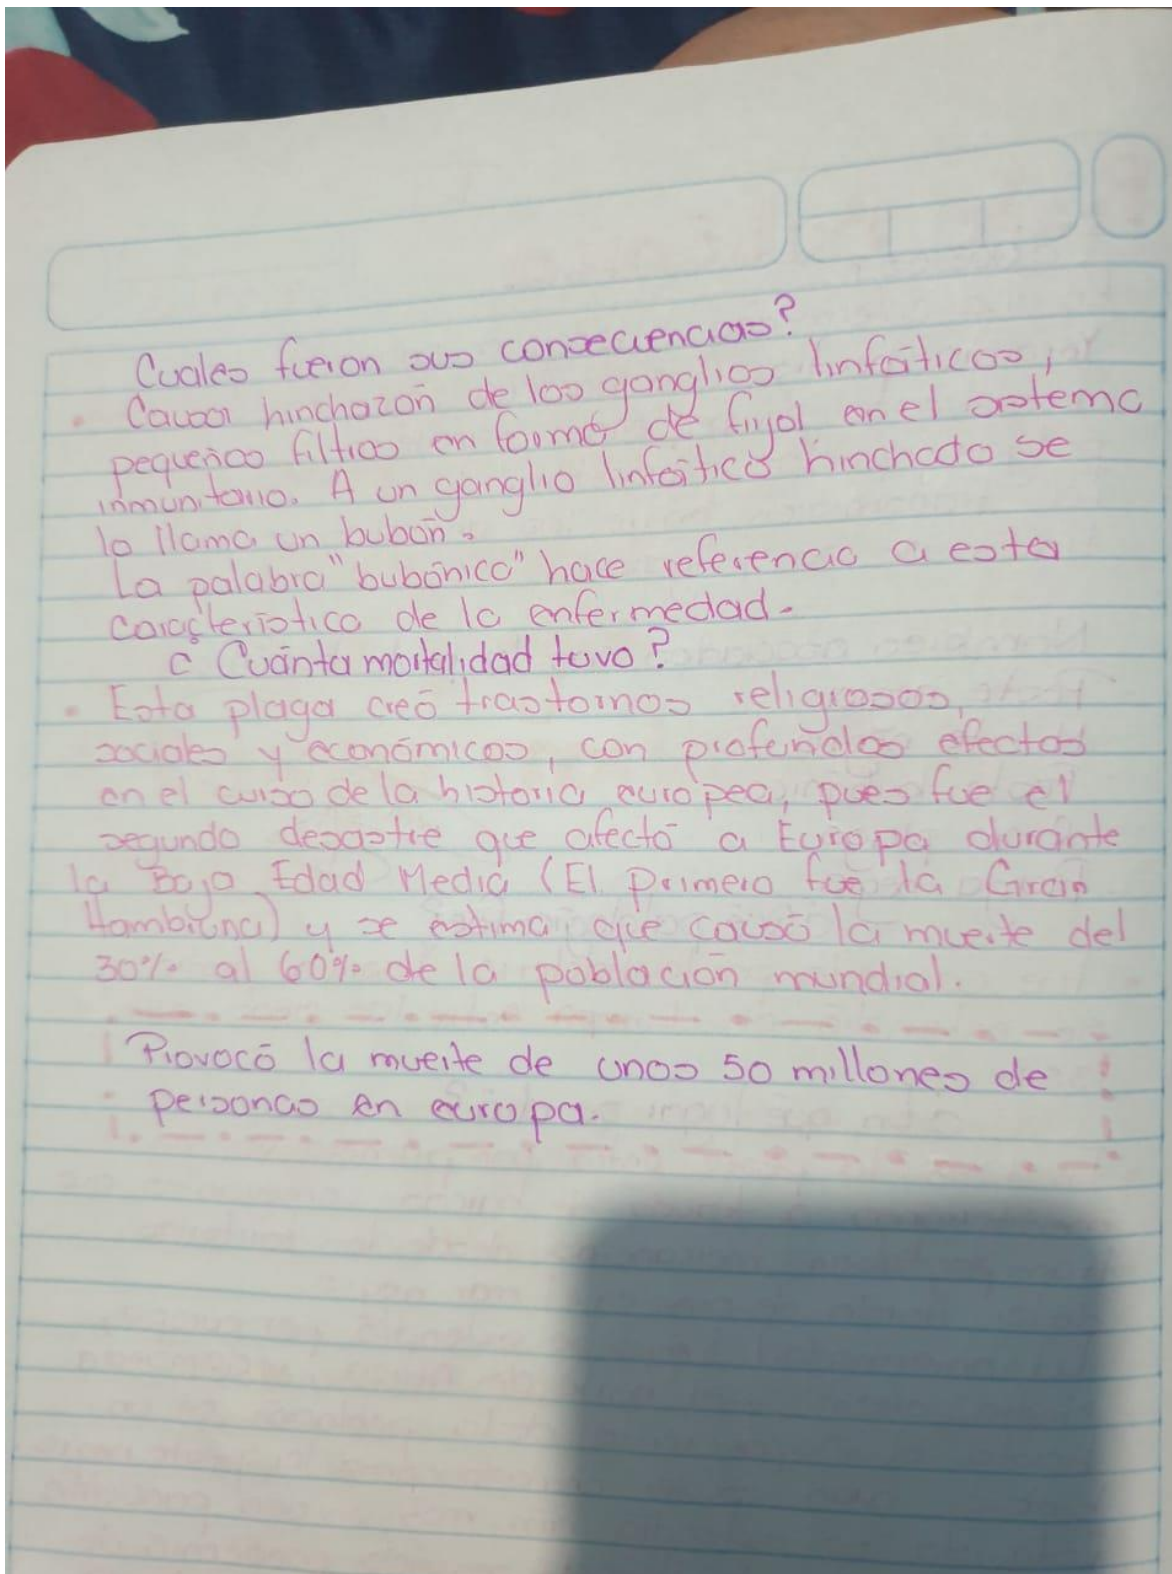 Cuales fueron sus consecuencias?
• Causa hinchazón de los ganglios linfáticos,
pequeños filtros en forma de frijol en el sistema
inmunitario. A un ganglio linfático hinchado se
lo llama un bubón.
La palabra "bubónica" hace referencia a esta
característica de la enfermedad.
¿ Cuánta mortalidad tuvo?
• Esta plaga creó trastornos religiosos,
sociales y económicos, con profundos efectos
en el curso de la historia europea, pues fue el
segundo desastre que afectó a Europa durante
la Baja Edad Media (El Primero fue la Gran
Hambruna) y se estima que causó la muerte del
30% al 60% de la población mundial.
Provocó la muerte de unos 50 millones de
personas en europa.